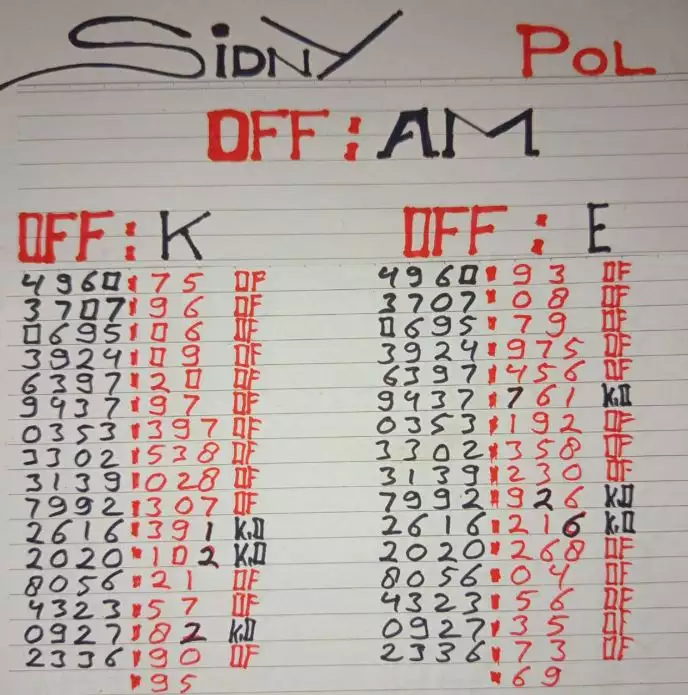 SIDNY POL
OFF: AM
OFF: K OFF: E
4960:75 OF 4960:93 OF
3707:96 OF 3707:08 OF
0695:06 OF 0695:79 OF
3924:09 OF 3924:975 OF
6397:20 OF 6397:456 OF
9437:97 OF 9437:761 K.O
0353:397 OF 0353:192 OF
3302:538 OF 3302:358 OF
3139:028 OF 3139:230 OF
7992:307 OF 7992:926 K.O
2616:391 K.O 2616:216 K.O
2020:102 K.O 2020:268 OF
8056:21 OF 8056:04 OF
4323:57 OF 4323:56 OF
0927:82 K.O 0927:35 OF
2336:90 OF 2336:73 OF
:95 :69